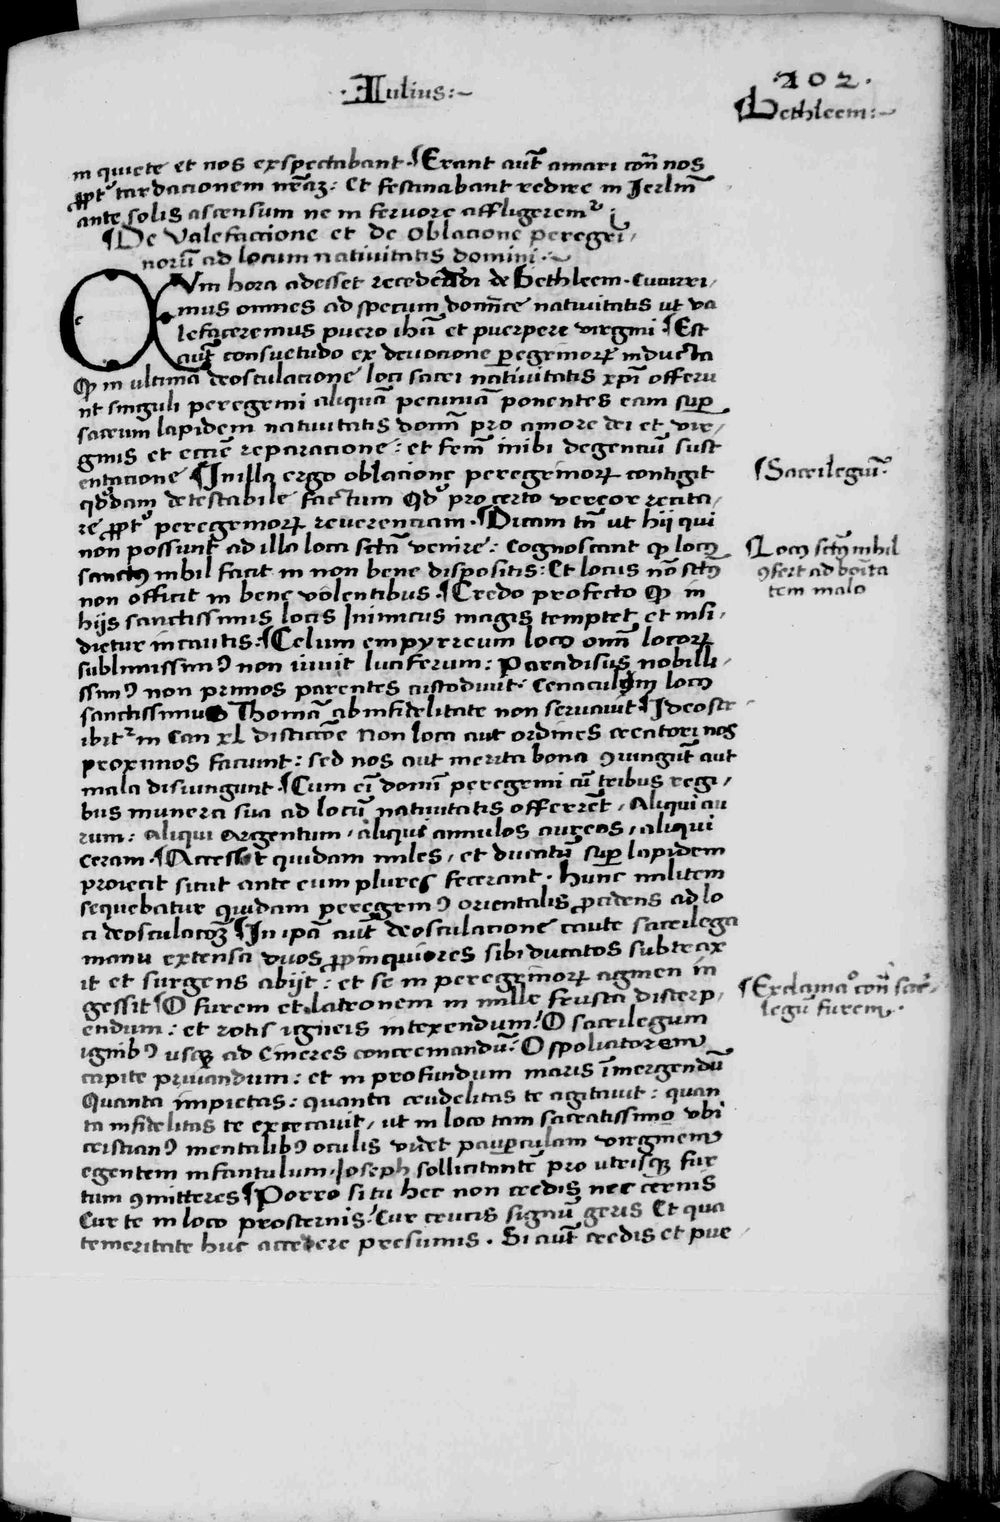 ·Iulius:~
·202·
Bethleem:~
in quiete et nos exspectabant·¶Erant aut̄ amari cōn nos
ꝓpt᷒ tardacionem nr̄aꝫ: Et festinabant redire in Jerlm̄
ante solis ascensum ne in fervore affligerem᷒ ;
¶De Valefactione et de oblacione peregri,
norū ad locum nativitatis domini·~
CVm hora adesset recedendi de Bethleem· Cucurri,
mus omnes ad specum domīce nativitatis ut va
lefaceremus puero ihū et puerpere virgini ¶Est
aut̄ consuetudo ex devocione ꝑegrinoꝝ inducta
ꝙ in ultima deosculacione loci sacri nativitatis xp̄i offeru
nt singuli peregrini aliquā pecuniā ponentes eam suꝑ
sacrum lapidem nativitatis domī pro amore dei et vir,
ginis et eccīe reparacione: et fem̄ inibi degenciū sust
entacione ¶In illa ergo oblacione peregrinoꝝ contigit
qd᷒dam detestabile factum Qd᷒ pro certo vereor recita,
re ꝓpt᷒ peregrinoꝝ reverenciam·¶Dicam tn̄ ut hij qui
non possunt ad illa loca sctā venire: cognoscant ꝙ locꝰ
sanctꝰ nihil facit in non bene dispositis: Et locus nō sctꝰ
non officit in bene volentibus·¶Credo profecto ꝙ in
hijs sanctissimis locis Inimicus magis temptet et insi,
dietur incautis·¶Celum empyrreum locꝰ om̄ locoꝝ
sublimissimꝰ non iuvit luciferum: Paradisus nobilli,
ssimꝰ non primos parentes custodivit· Cenaculum locꝰ
sanctissimus Thomā ab infidelitate non servavit ¶Ideo scr
ibit᷒ in Can xl distīccōe Non loca aut ordines creatori nos
proximos faciunt: sed nos aut merita bona ꝯiungūt aut
mala disiungunt·¶Cum eī domī peregrini cū tribus regi,
bus munera sua ad locū nativitatis offerrēt, Aliqui au
rum: aliqui argentum, aliqui annulos aureos, aliqui
ceram·¶Accessit quidam miles, et ducatū suꝑ lapidem
proiecit sicut ante eum plures fecerant· hunc militem
sequebatur quidam peregrinꝰ orientalis ꝓcidens ad lo
ci deosculacōꝫ ¶In ipā aut̄ deosculacione caute sacrilega
manu extensa duos ꝓpinquiores sibi ducatos subtrax
it et surgens abijt: et se in peregrinoꝝ agmen in
gessit ¶O furem et latronem in mille frusta discerp,
endum: et rotis igneis intexendum! O sacrilegum
ignibꝰ usqꝫ ad Cineres concremandū: O spoliatorem
capite privandum: et in profundum maris īmergendū
Quanta impietas: quanta crudelitas te agitavit: quan
ta infidelitas te excecavit, ut in loco tam sacratissimo ubi
cristianꝰ mentalibꝰ oculis videt pauꝑculam virginem
egentem infantulum· Joseph sollicitantē pro utrisqꝫ fur
tum ꝯmitteres ¶Porro si tu hec non credis nec cernis
Cur te in loco prosternis! Cur crucis signū geris Et qua
temeritate huc accedere presumis· Si aut̄ credis et pue
¶Sacrilegiū·
¶Locꝰ sctꝰ nihil
ꝯfert ad boīta
tem malo
¶Exclama᷒o con̄ sac᷒,
legū furem·